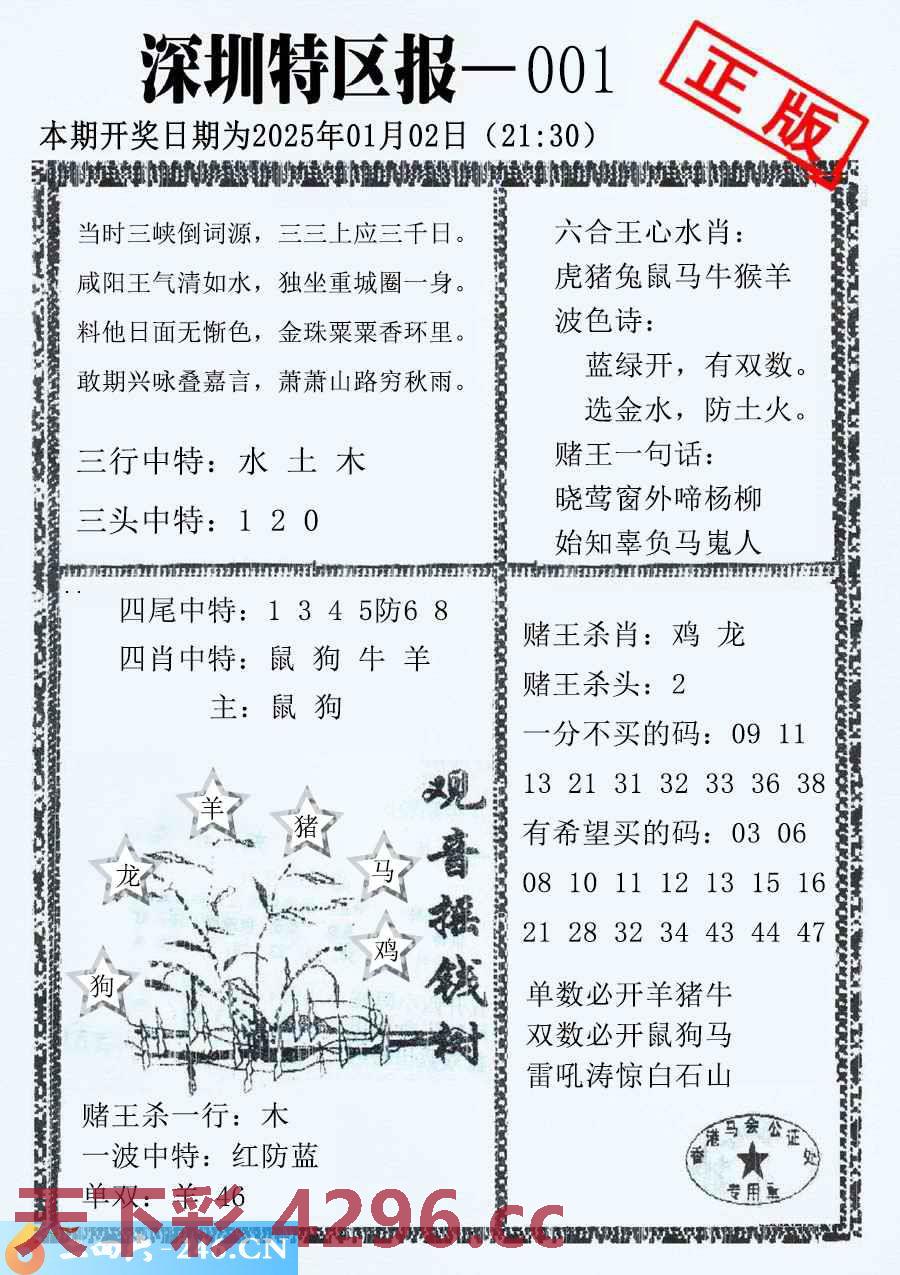 深圳特区报—001
正版
本期开奖日期为2025年01月02日（21:30）
当时三峡倒词源，三三上应三千日。
咸阳王气清如水，独坐重城圈一身。
料他日面无惭色，金珠粟粟香环里。
敢期兴咏叠嘉言，萧萧山路穷秋雨。
三行中特：水 土 木
三头中特：1 2 0
六合王心水肖：
虎猪兔鼠马牛猴羊
波色诗：
蓝绿开，有双数。
选金水，防土火。
赌王一句话：
晓莺窗外啼杨柳
始知辜负马嵬人
四尾中特：1 3 4 5防6 8
四肖中特：鼠 狗 牛 羊
主：鼠 狗
羊
猪
龙
马
鸡
狗
观音摇钱树
赌王杀一行：木
一波中特：红防蓝
单双：羊 46
赌王杀肖：鸡 龙
赌王杀头：2
一分不买的码：09 11
13 21 31 32 33 36 38
有希望买的码：03 06
08 10 11 12 13 15 16
21 28 32 34 43 44 47
单数必开羊猪牛
双数必开鼠狗马
雷吼涛惊白石山
香港马会公证处
专用章
天下彩 4296.cc